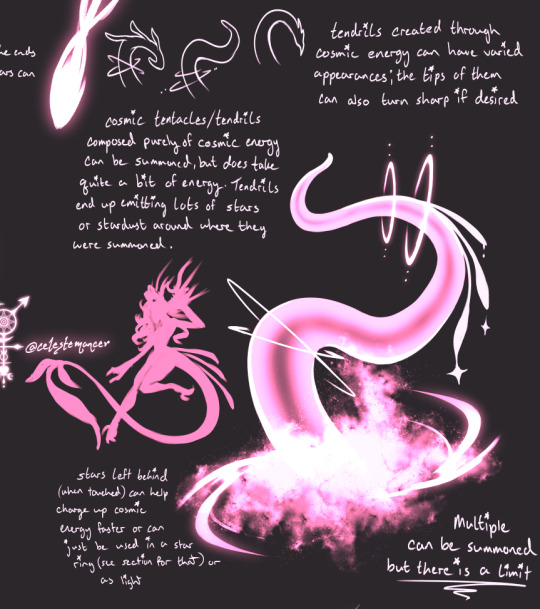 tendrils created through
cosmic energy can have varied
appearances; the tips of them
can also turn sharp if desired
ends
can
cosmic tentacles/tendrils
composed purely of cosmic energy
can be summoned, but does take
quite a bit of energy. Tendrils
end up emitting lots of stars
or stardust around where they
were summoned.
@celestemancer
stars left behind
(when touched) can help
charge up cosmic
energy faster or can
just be used in a star
ring (see section for that) or
as light
Multiple
can be summoned
but there is a limit